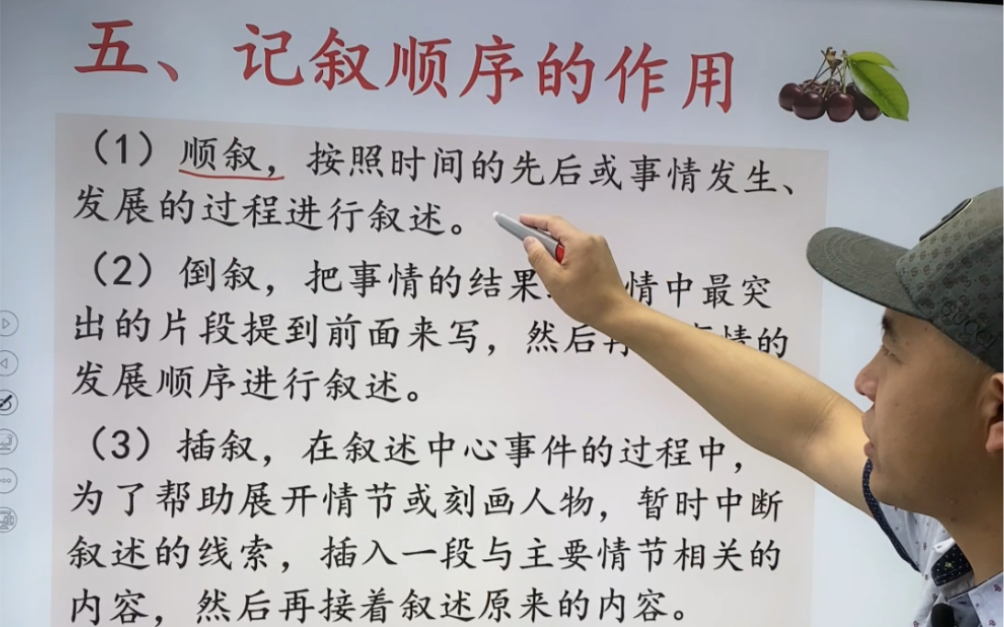 五、记叙顺序的作用
（1）顺叙，按照时间的先后或事情发生、
发展的过程进行叙述。
（2）倒叙，把事情的结果 情中最突
出的片段提到前面来写，然后再 情的
发展顺序进行叙述。
（3）插叙，在叙述中心事件的过程中，
为了帮助展开情节或刻画人物，暂时中断
叙述的线索，插入一段与主要情节相关的
内容，然后再接着叙述原来的内容。